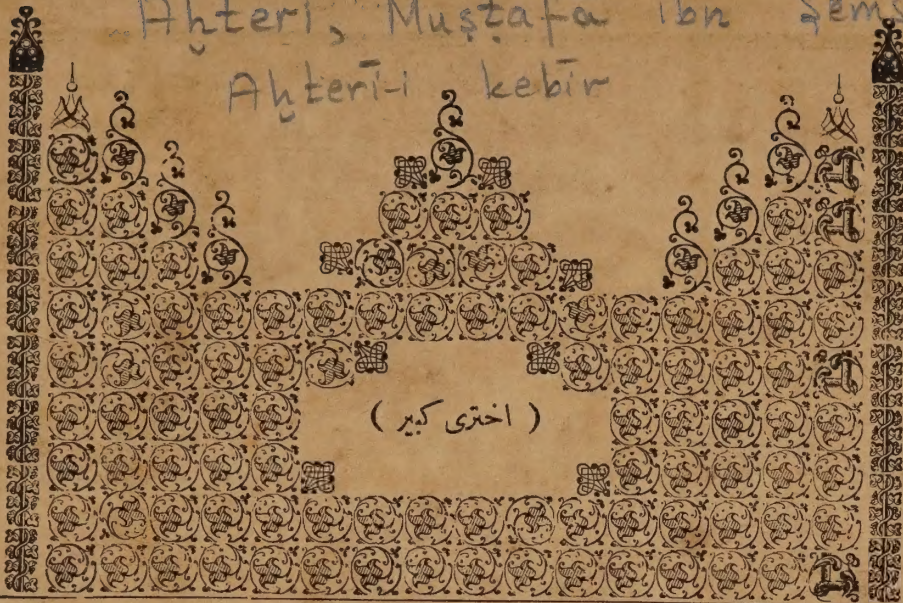 Aḫterī, Muṣṭafa ibn Şems
Aḫterī-i kebīr
( اختری کبیر )